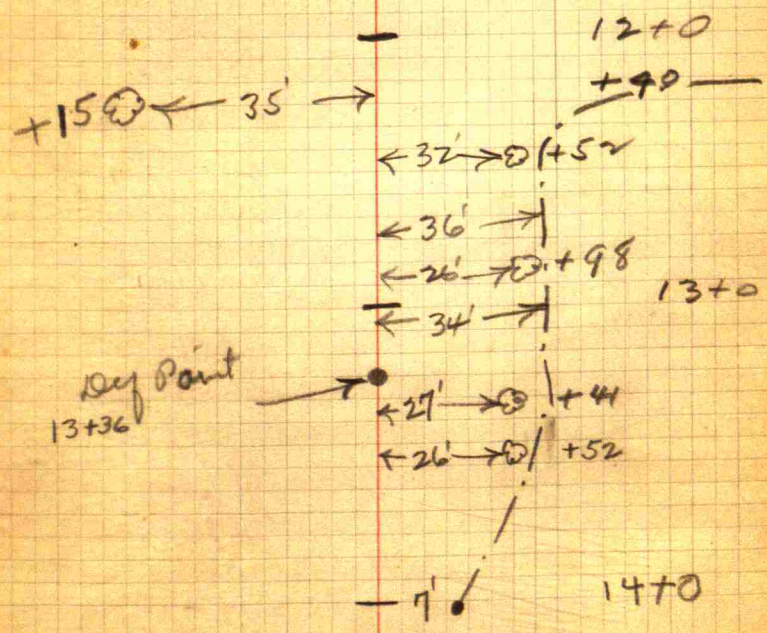 12+0
+40
+15 35'
32' +52
36'
26' +98
13+0
34'
Def Point
13+36
27' +41
26' +52
7' 14+0